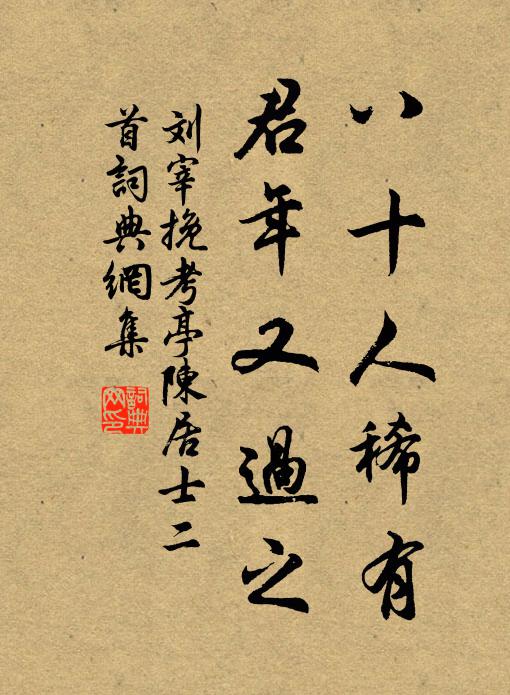 八十人稀有
君年又過之
刘宰挽考亭陳居士二
首詞典網集
詞典
网印